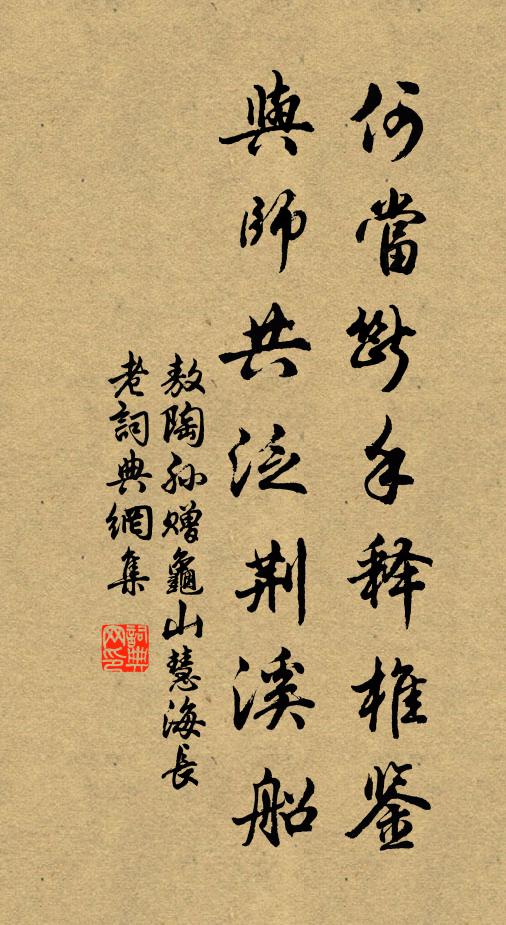 何當断手释椎鉴
與師共泛荆溪船
敖陶孙赠龜山慧海長
老詞典網集
詞典网印